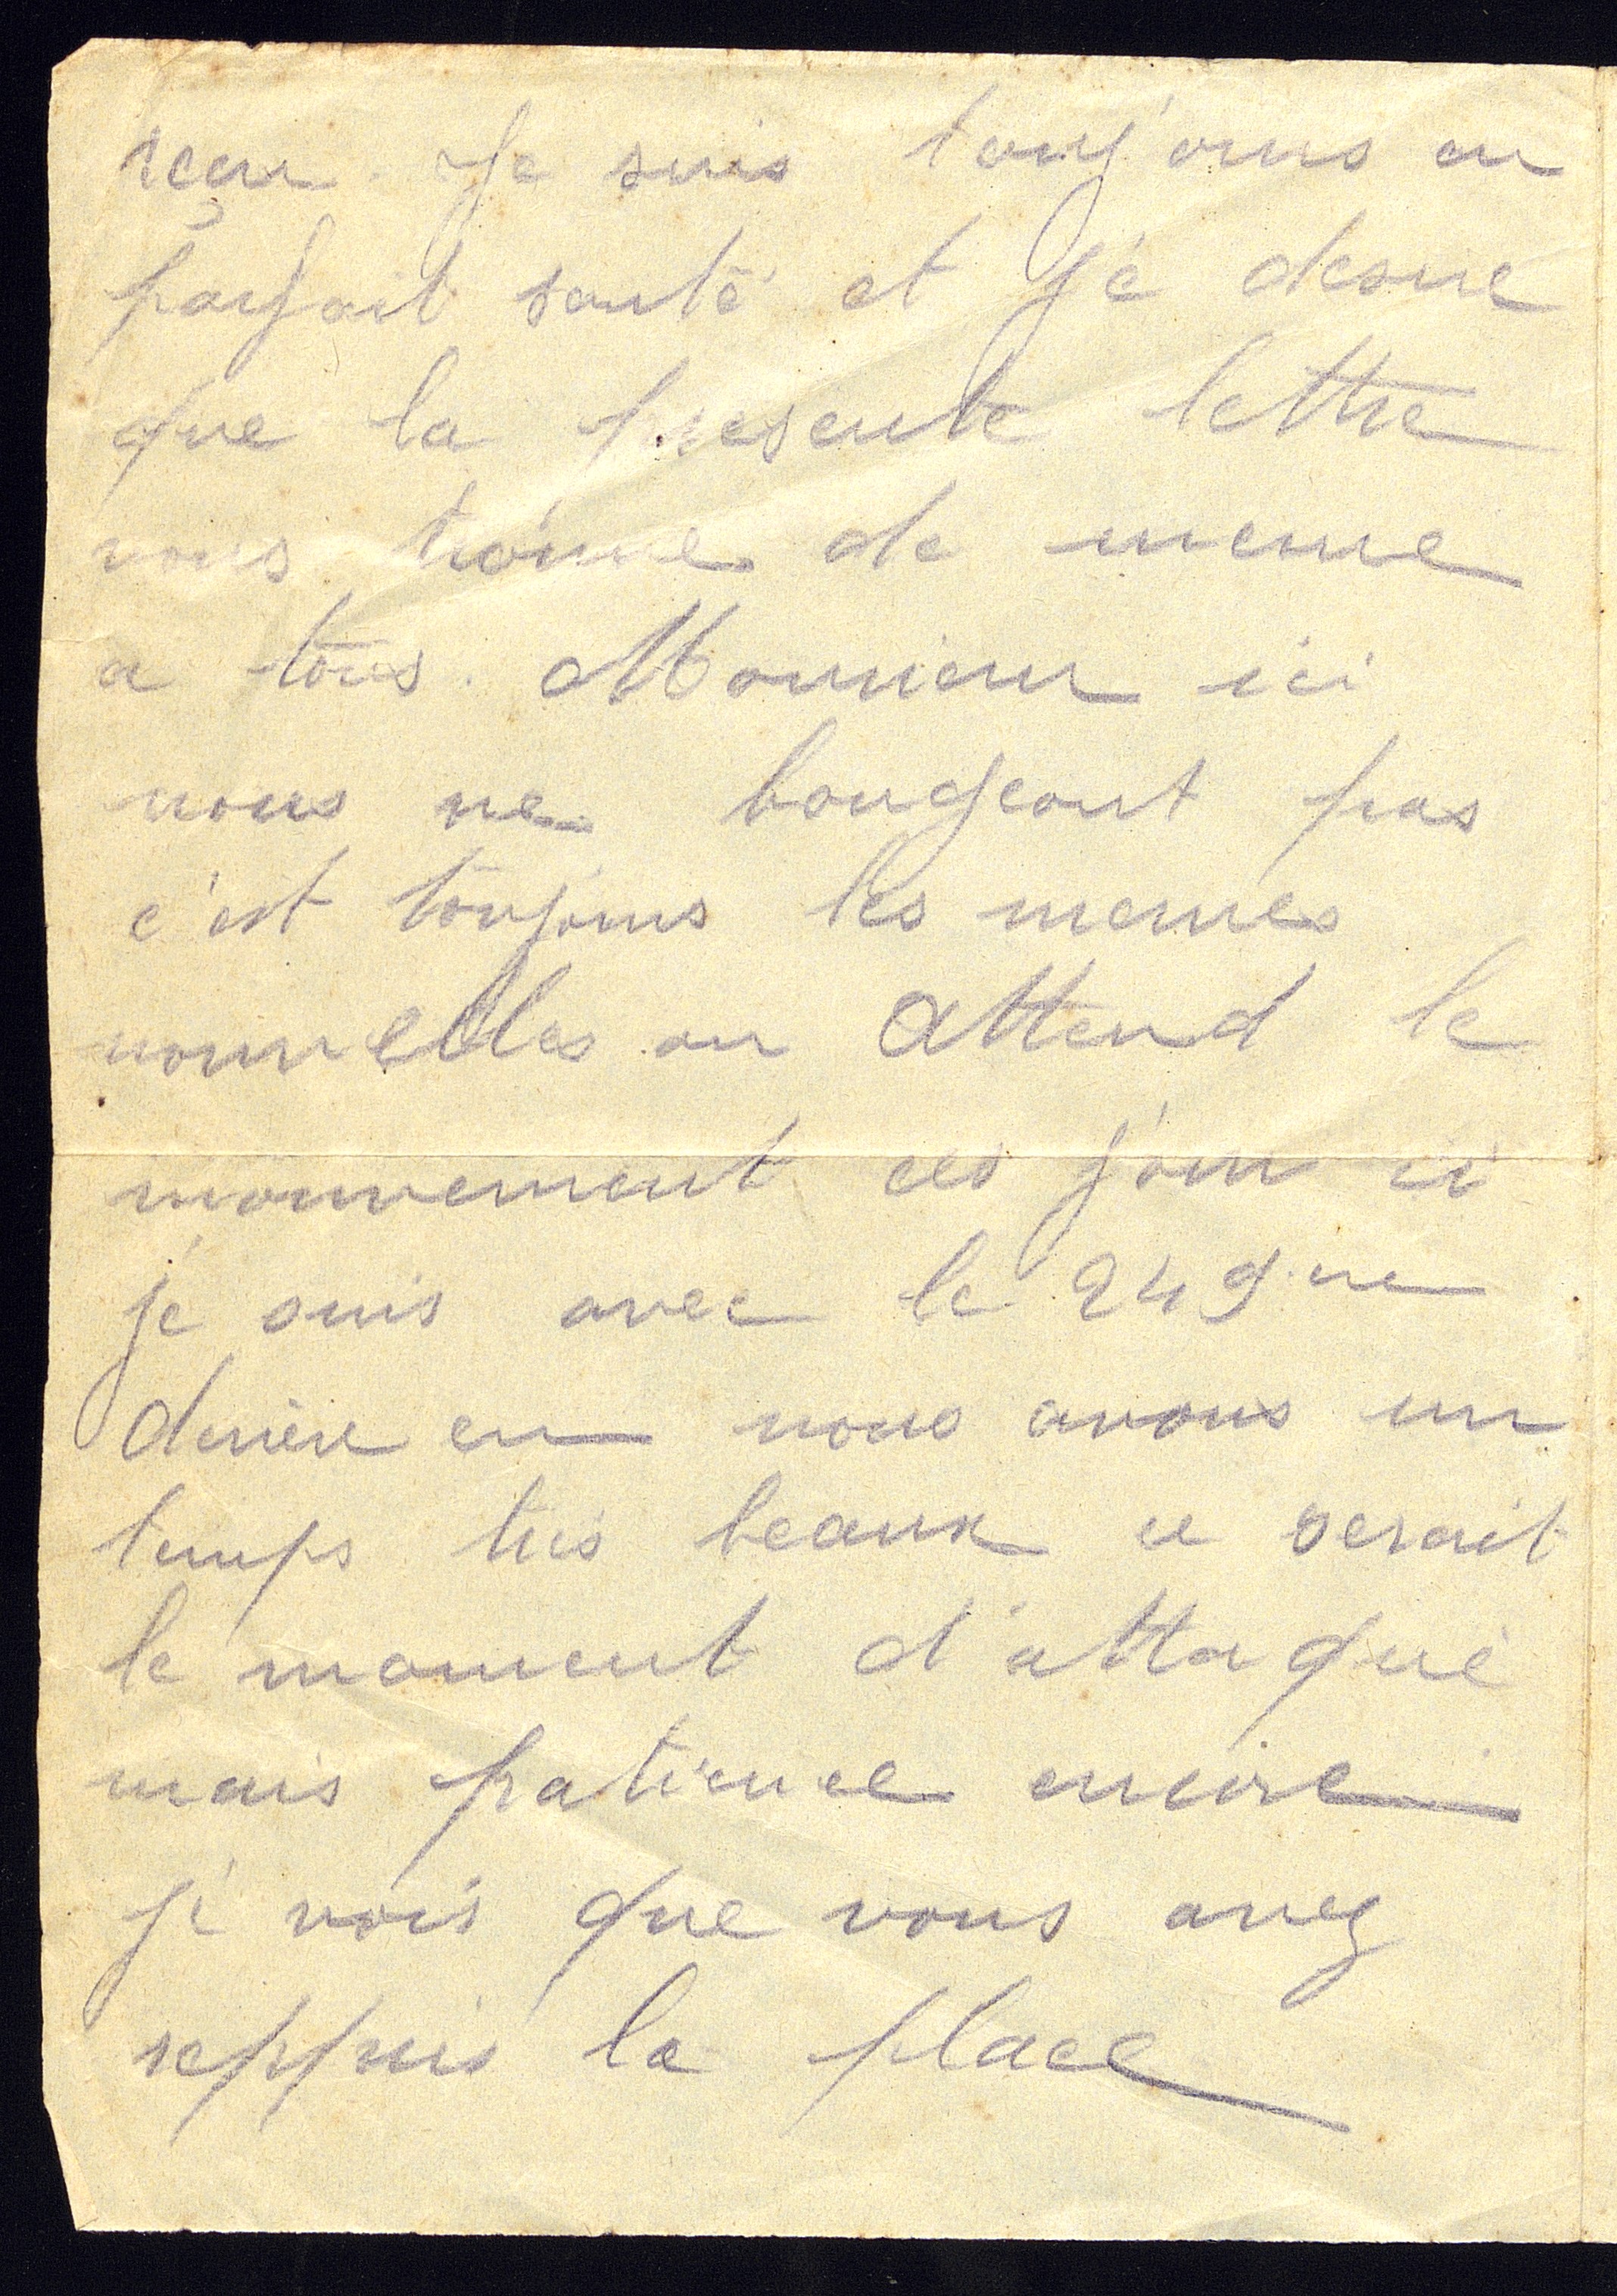 reçu. Je suis toujours en
parfait santé et je desire
que la presente lettre
vous trouve de meme
a tous. Monsieur ici
nous ne bougeont pas
c'est toujours les memes
nouvelles on attend le
mouvement ces jour ci
je suis avec le 249 me
derière nous avons un
temps tres beaux ce serait
le moment d'attaque
mais patience encore
je vois que vous avez
reppris la place